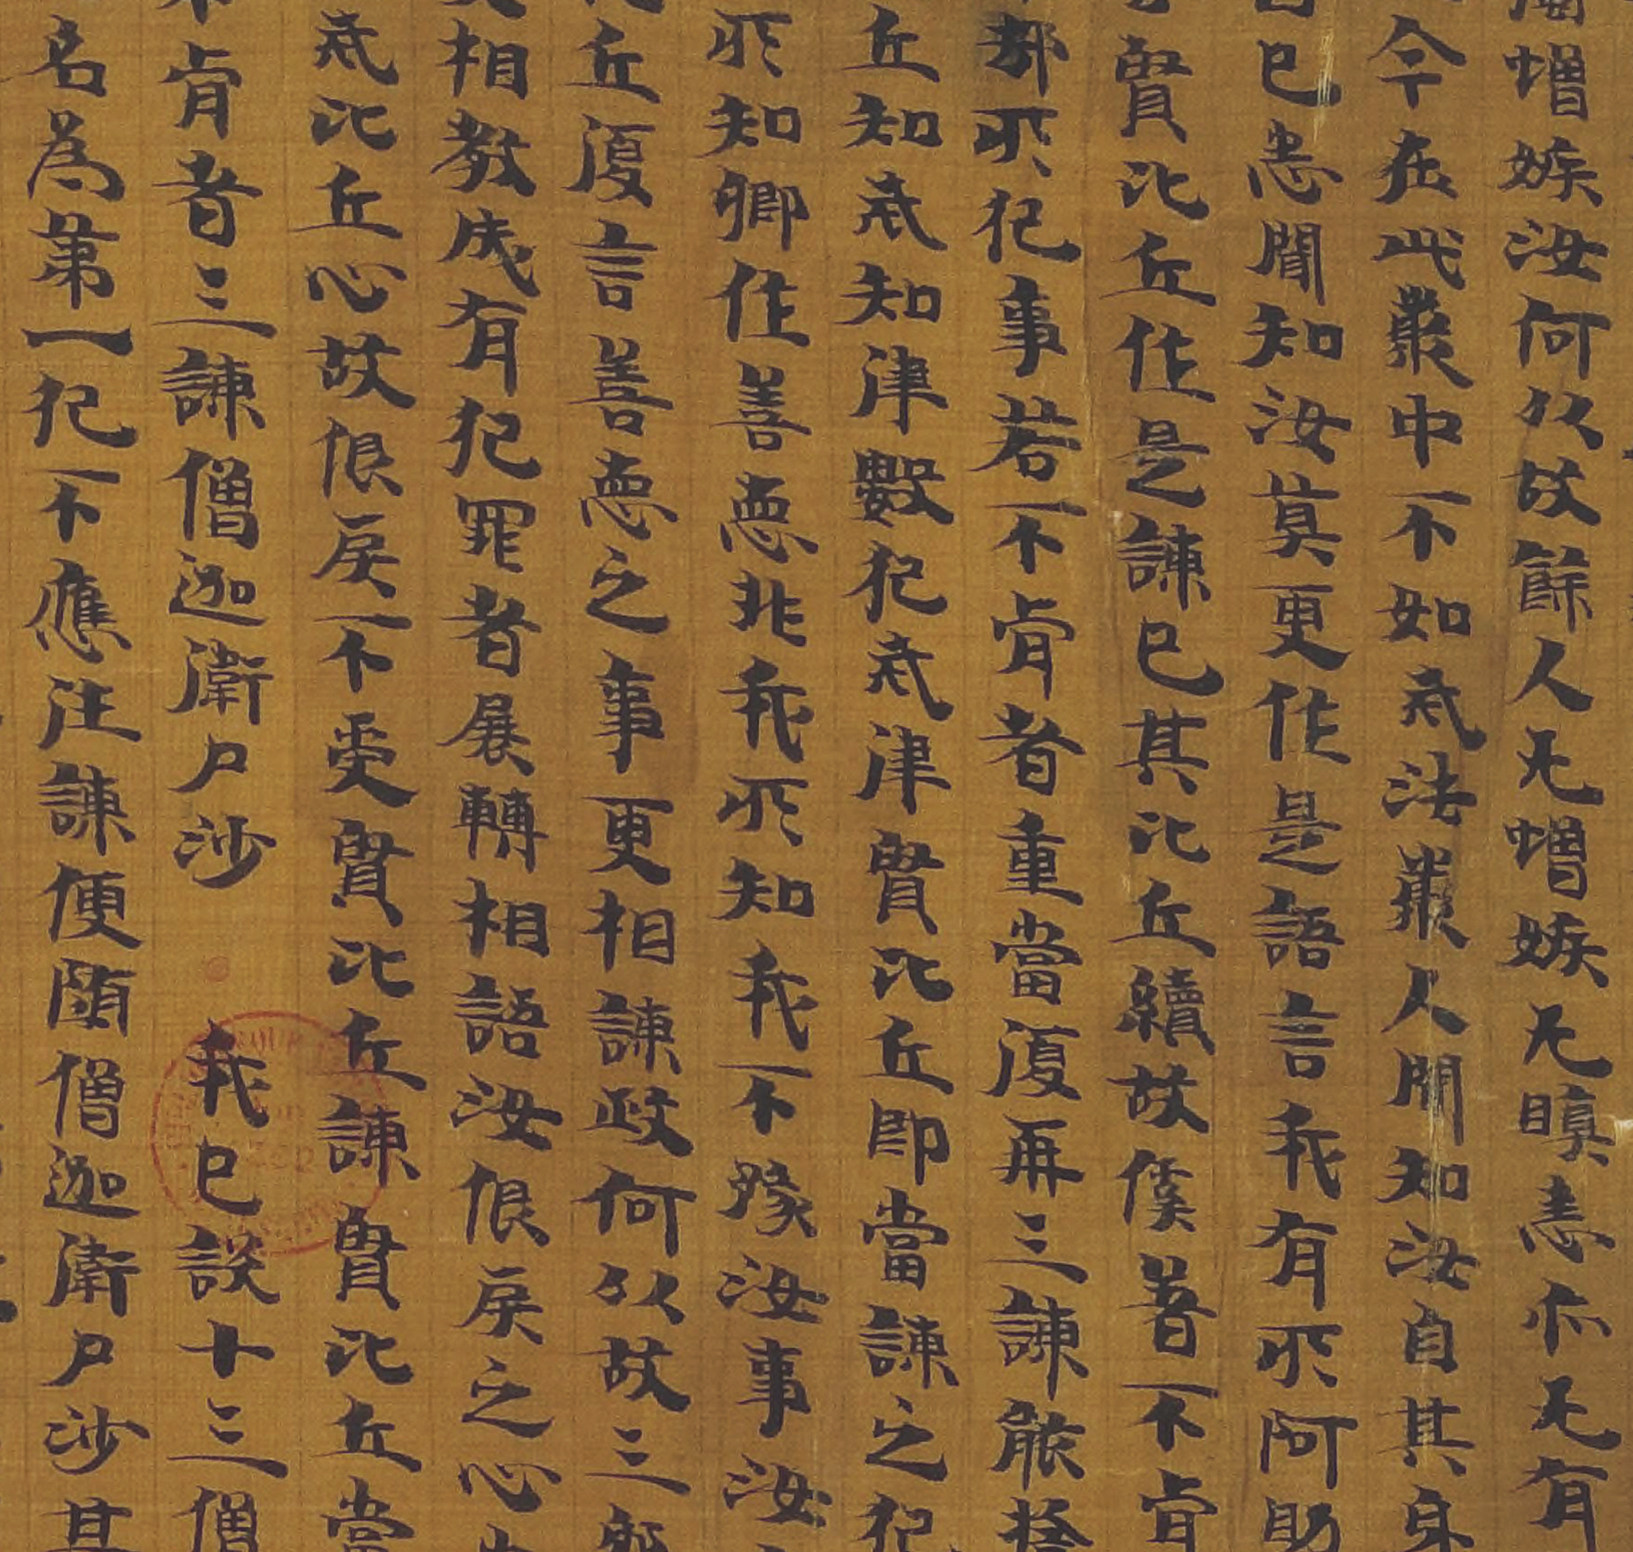 憎嫉汝何以故餘人无憎嫉无瞋恚亦无有
今在此叢中不如戒法叢人聞知汝自其身
已悉聞知汝莫更作是語言我有所阿助
賢比丘作是諫已其比丘續故傒著不肯
都所犯事若不肯者重當復再三諫能捨
丘知戒知律數犯戒律賢比丘即當諫之犯
所知卿作善惡非我所知我不豫汝事汝
丘復言善惡之事更相諫政何以故三部
相教成有犯罪者展轉相語汝恨戾之心
戒比丘心故恨戾不受賢比丘諫賢比丘當
肯者三諫僧迦衛尸沙 我已談十三僧
名為第一犯不應注諫便隨僧迦衛尸沙其